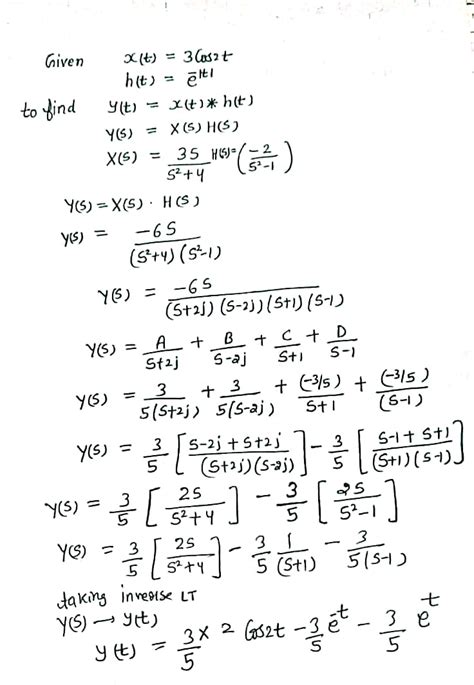 Given x(t) = 3Cos2t
h(t) = e^-|t|
to find y(t) = x(t) * h(t)
Y(s) = X(s) H(s)
X(s) = 3S/(S²+4) H(s) = (-2/(S²-1))
Y(s) = X(s) · H(s)
Y(s) = -6S/((S²+4)(S²-1))
Y(s) = -6S/((S+2j)(S-2j)(S+1)(S-1))
Y(s) = A/(S+2j) + B/(S-2j) + C/(S+1) + D/(S-1)
Y(s) = 3/(5(S+2j)) + 3/(5(S-2j)) + (-3/5)/(S+1) + (-3/5)/(S-1)
Y(s) = 3/5 [(S-2j+S+2j)/((S+2j)(S-2j))] - 3/5 [(S-1+S+1)/((S+1)(S-1))]
Y(s) = 3/5 [2S/(S²+4)] - 3/5 [2S/(S²-1)]
Y(s) = 3/5 [2S/(S²+4)] - 3/5 1/(S+1) - 3/(5(S-1))
taking inverse LT
Y(s) → y(t)
y(t) = 3/5 × 2 Cos2t - 3/5 e^-t - 3/5 e^t